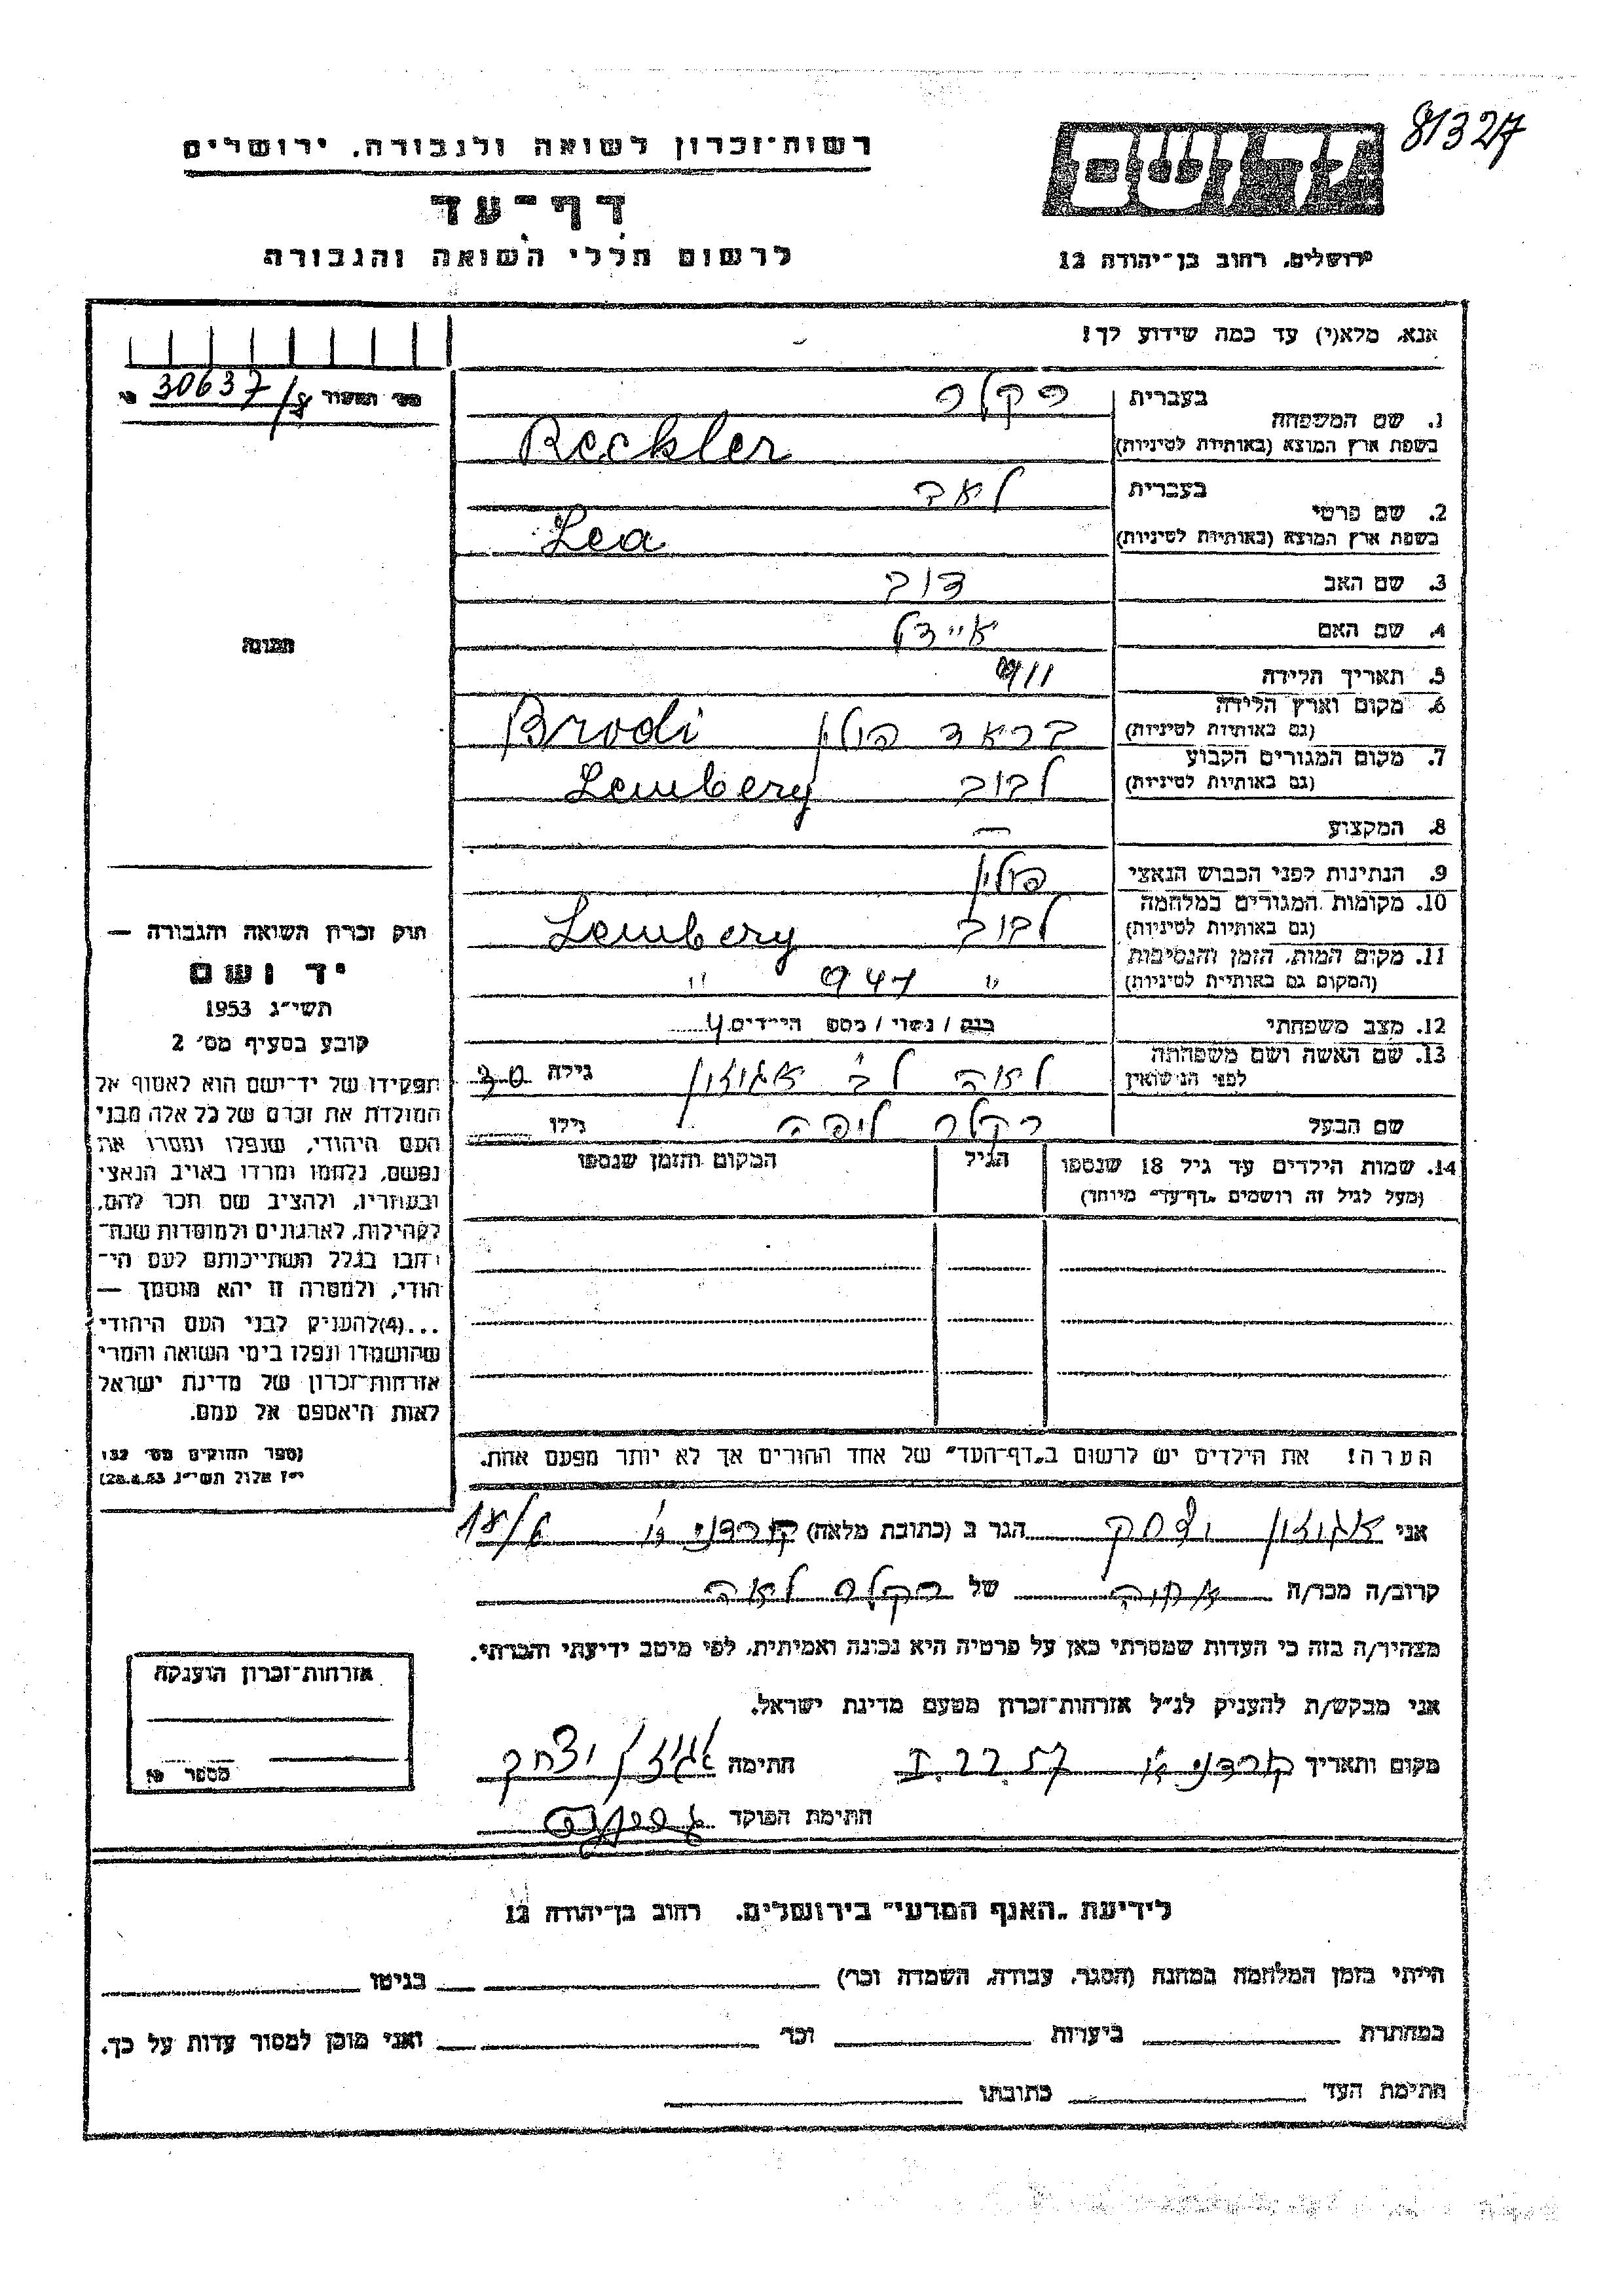 81327
רשות־זכרון לשואה ולגבורה, ירושלים
דף־עד
לרשום חללי השואה והגבורה
ירושלים, רחוב בן־יהודה 12
אנא, מלא(י) עד כמה שידוע לך!
30637/8
1. שם המשפחה בעברית רקלר
בשפת ארץ המוצא (באותיות לטיניות) Reckler
2. שם פרטי בעברית לאה
בשפת ארץ המוצא (באותיות לטיניות) Lea
3. שם האב דוב
4. שם האם איידל
5. תאריך הלידה 911
6. מקום וארץ הלידה (גם באותיות לטיניות) בראד פולין Brodi
7. מקום המגורים הקבוע (גם באותיות לטיניות) לבוב Lemberg
8. המקצוע —
9. הנתינות לפני הכבוש הנאצי פולין
10. מקומות המגורים במלחמה (גם באותיות לטיניות) לבוב Lemberg
11. מקום המות, הזמן והנסיבות (המקום גם באותיות לטיניות) " 941 "
12. מצב משפחתי רווק / נשוי / מספר הילדים
13. שם האשה ושם משפחתה לפני הנישואין לאה לב' אגוזון גילה 30
שם הבעל רקלר ליפה גילו
14. שמות הילדים עד גיל 18 שנספו הגיל המקום והזמן שנספו
(מעל לגיל זה רושמים „דף־עד" מיוחד)
הערה! את הילדים יש לרשום ב„דף־העד" של אחד ההורים אך לא יותר מפעם אחת.
תמונה
חוק זכרון השואה והגבורה —
יד ושם
תשי"ג 1953
קובע בסעיף מס' 2
תפקידו של יד־ושם הוא לאסוף אל
המולדת את זכרם של כל אלה מבני
העם היהודי, שנפלו ומסרו את
נפשם, נלחמו ומרדו באויב הנאצי
ובעוזריו, ולהציב שם וזכר להם,
לקהילות, לארגונים ולמוסדות שנח־
רבו בגלל השתייכותם לעם הי־
הודי, ולמטרה זו יהא מוסמך —
...(4) להעניק לבני העם היהודי
שהושמדו ונפלו בימי השואה והמרי
אזרחות־זכרון של מדינת ישראל
לאות היאספם אל עמם.
(ספר החוקים מס' 132
י"ז אלול תשי"ג 28.8.53)
אני אגוזון יצחק הגר ב (כתובת מלאה) קורדני ג' 18/6
קרוב/ה מכר/ה אחיה של רקלר לאה
מצהיר/ה בזה כי העדות שמסרתי כאן על פרטיה היא נכונה ואמיתית, לפי מיטב ידיעתי והכרתי.
אני מבקש/ת להעניק לנ"ל אזרחות־זכרון מטעם מדינת ישראל.
מקום ותאריך קורדני א' חתימה אגוזון יצחק
חתימת הפוקד
אזרחות־זכרון הוענקה
מספר
לידיעת „האגף המדעי" בירושלים, רחוב בן־יהודה 12
הייתי בזמן המלחמה במחנה (הסגר, עבודה, השמדה וכו') בגיטו
במחתרת ביערות וכו' ואני מוכן למסור עדות על כך.
חתימת העד כתובתו